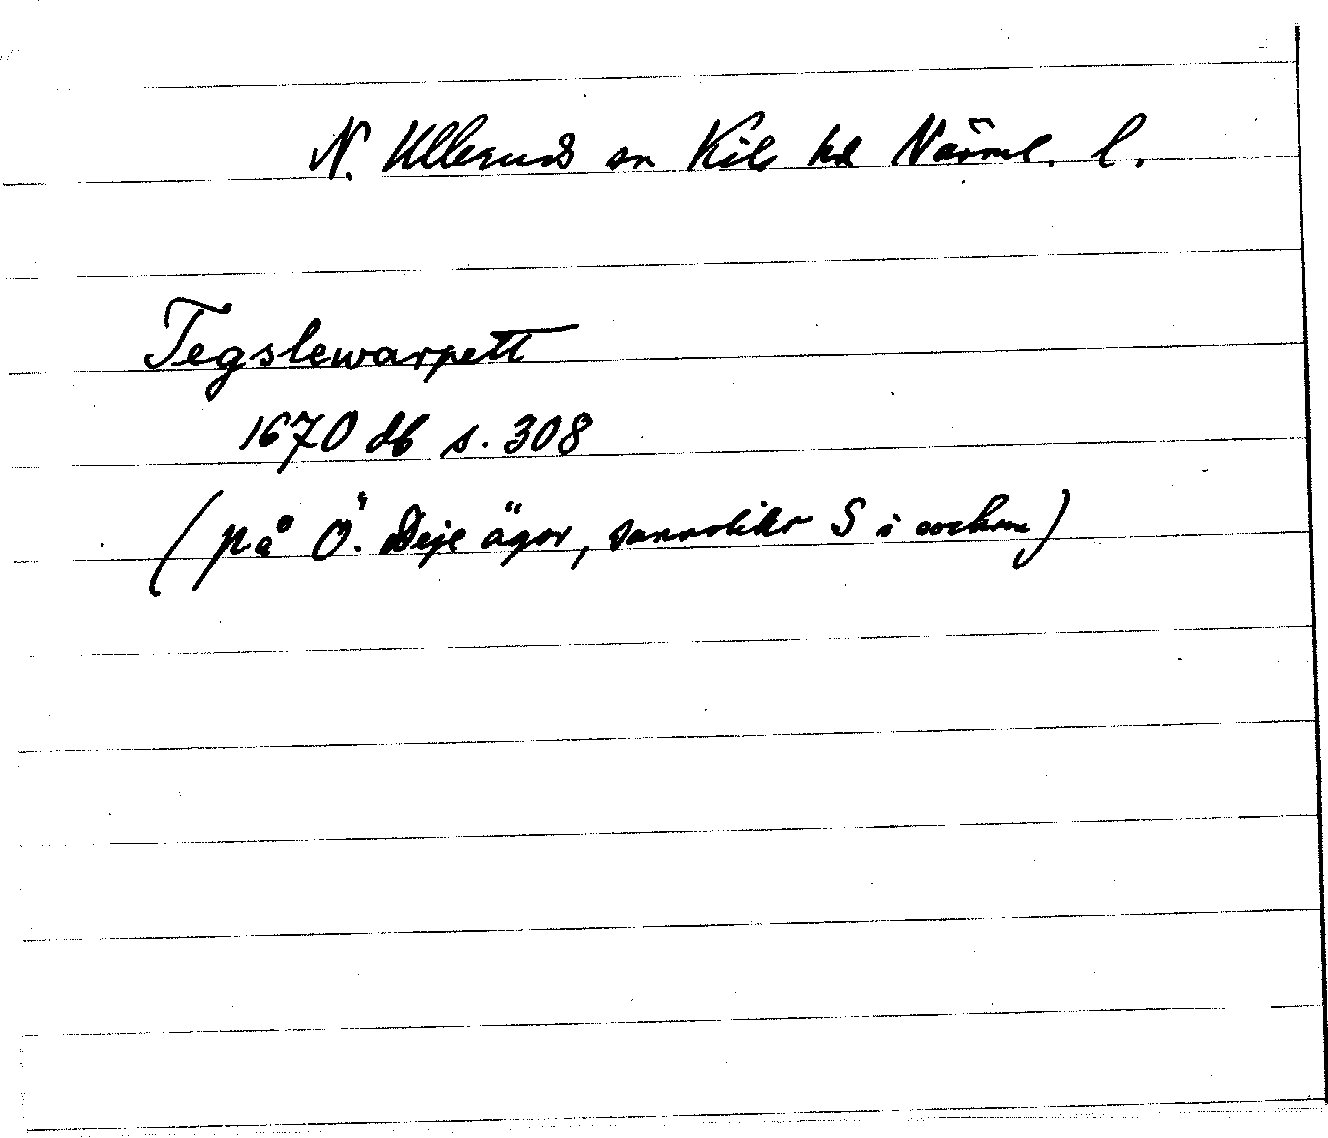 N. Ullerud sn Kil hd Värml. l.
Tegslewarpett
1670 db s. 308
(på Ö. Deje ägor, sannolikt S i socknen)